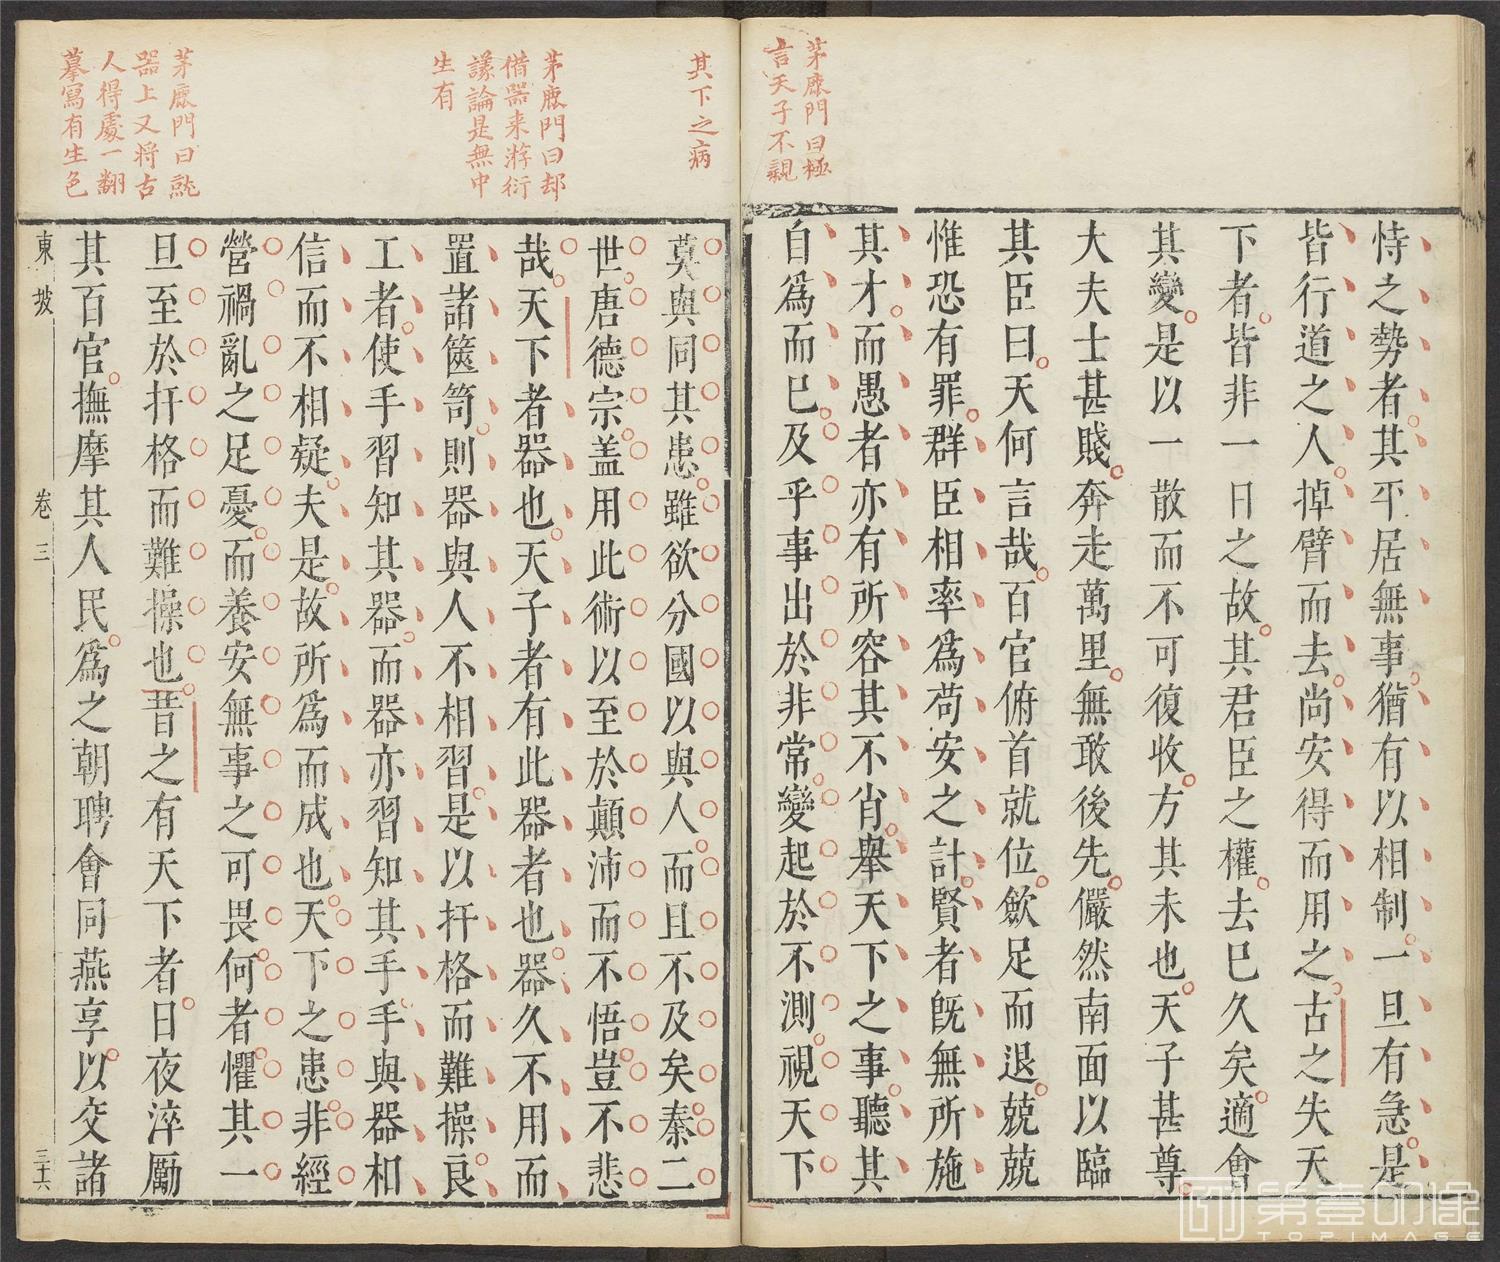 茅鹿門曰極
言天子不親
其下之病
恃之勢者其平居無事猶有以相制一旦有急是
皆行道之人掉臂而去尚安得而用之古之失天
下者皆非一日之故其君臣之權去已久矣適會
其變是以一散而不可復收方其未也天子甚尊
大夫士甚賤奔走萬里無敢後先儼然南面以臨
其臣曰天何言哉百官俯首就位歛足而退兢兢
惟恐有罪群臣相率爲苟安之計賢者旣無所施
其才而愚者亦有所容其不肖舉天下之事聽其
自爲而已及乎事出於非常變起於不測視天下
茅鹿門曰却
借器来游衍
議論是無中
生有
茅鹿門曰就
器上又将古
人得處一翻
摹寫有生色
莫與同其患雖欲分國以與人而且不及矣秦二
世唐德宗盖用此術以至於顛沛而不悟豈不悲
哉天下者器也天子者有此器者也器久不用而
置諸篋笥則器與人不相習是以扞格而難操良
工者使手習知其器而器亦習知其手手與器相
信而不相疑夫是故所爲而成也天下之患非經
營禍亂之足憂而養安無事之可畏何者懼其一
旦至於扞格而難操也昔之有天下者日夜淬勵
其百官撫摩其人民爲之朝聘會同燕享以交諸
東坡 卷三 三十六
第壹印像
TOPIMAGE